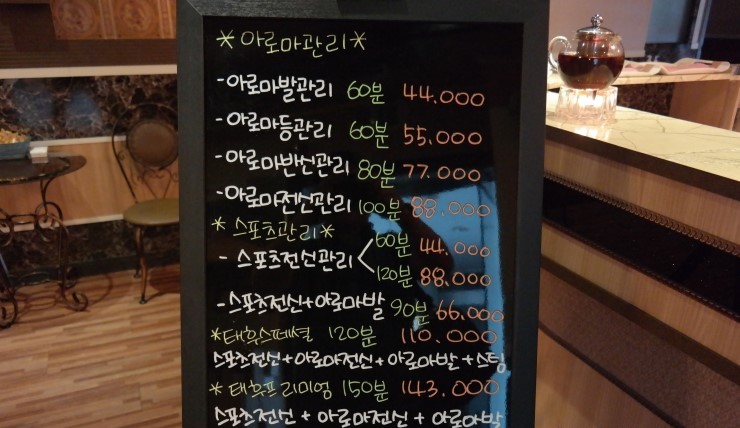 *아로마관리*
-아로마발관리 60분 44.000
-아로마등관리 60분 55.000
-아로마반신관리 80분 77.000
-아로마전신관리 100분 88.000
*스포츠관리*
- 스포츠전신관리 60분 44.000
120분 88.000
-스포츠전신+아로마발 90분 66.000
*태후스페셜 120분 110.000
스포츠전신+아로마전신+아로마발+스팀
*태후프리미엄 150분 143.000
스포츠전신+아로마전신+아로마발